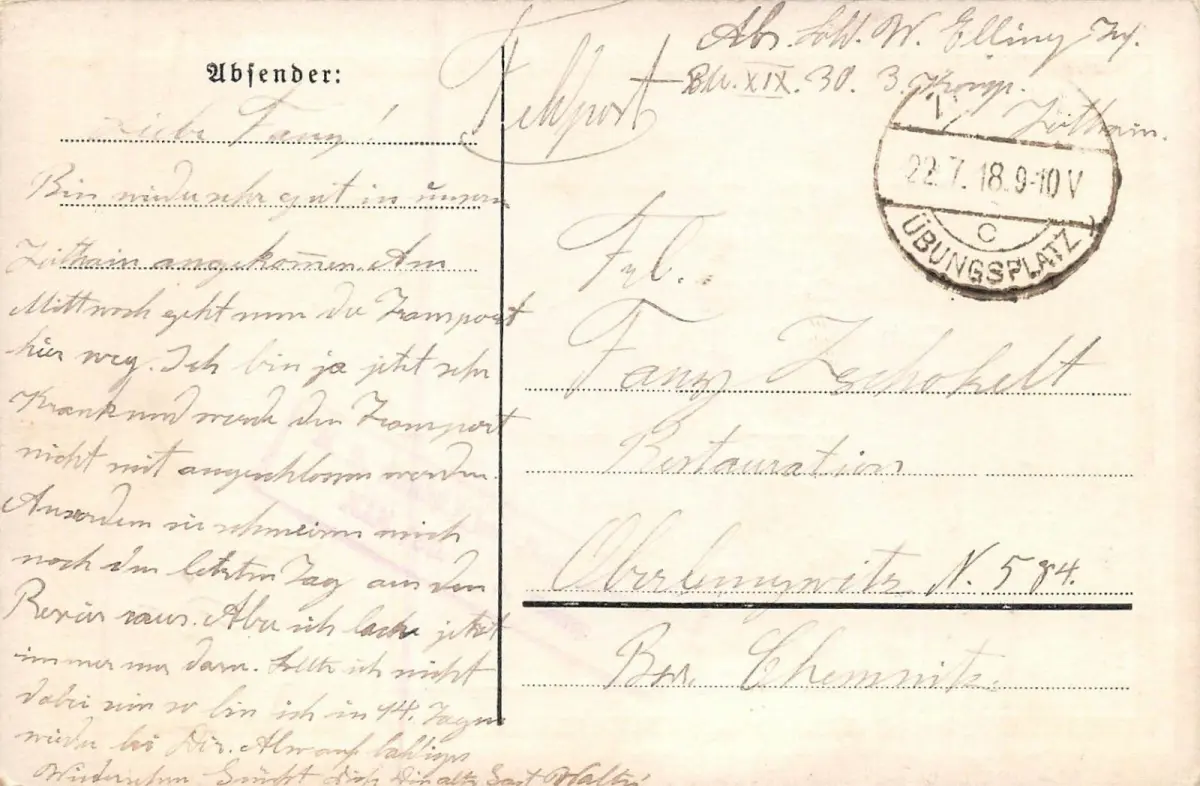 Absender:
Feldpost
Abs. Sold. W. Elling Inf.
Btl. XIX. 30. 3. Komp.
Zeithain.
22.7.18.9-10V
C
ÜBUNGSPLATZ
Liebe Fany!
Bin wieder sehr gut in unsern
Zeithain angekom̄en. Am
Mittwoch geht nun der Transport
hier weg. Ich bin ja jetzt sehr
Krank und werde den Transport
nicht mit angeschlossen werden.
Ausserdem sie schmeissen mich
noch den letzten Tag aus den
Revier raus. Aber ich lache jetzt
immer nur daru. Sollte ich nicht
dabei sein so bin ich in 14. Tagen
wieder bei Dir. Also auf baldiges
Wiedersehen Grüsst Dich Dir alte Walter
Frl.
Fany Zschokelt
Restauration
Oberlungwitz N. 584.
Bez. Chemnitz.